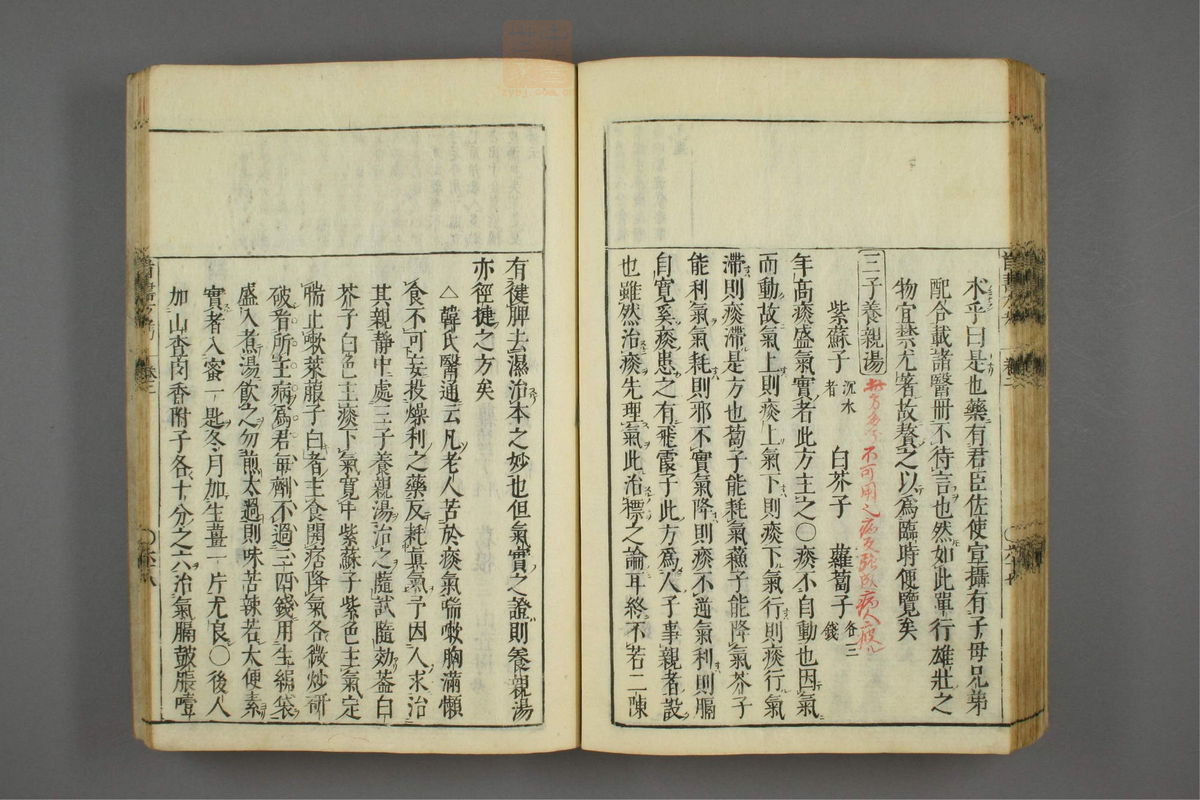 木乎曰是也藥有君臣佐使宣攝有子母兄弟
配合載諸醫冊不待言也然如此單行雄壯之
物宜禁尤著故贅之以爲臨時便覽矣
三子養親湯
紫蘇子 沉水者 白芥子 蘿蔔子 各三錢
年高痰盛氣實者此方主之〇痰不自動也因氣
而動故氣上則痰上氣下則痰下氣行則痰行氣
滯則痰滯是方也蔔子能耗氣蘓子能降氣芥子
能利氣氣耗則邪不實氣降則痰不逆氣利則膈
自寬奚痰患之有飛霞子此方爲人子事親者設
也雖然治痰先理氣此治標之論耳終不若二陳
有健脾去濕治本之妙也但氣實之證則養親湯
亦徑捷之方矣
△韓氏醫通云凡老人苦於痰氣喘嗽胸滿懶
食不可妄投燥利之藥反耗眞氣予因人求治
其親靜中處三子養親湯治之隨試隨効葢白
芥子白色主痰下氣寬中紫蘇子紫色主氣定
喘止嗽萊菔子白者主食開痞降氣各微炒研
破看所主病爲君每劑不過三四錢用生絹袋
盛入煮湯飲之勿煎太過則味苦辣若大便素
實者入蜜一匙冬月加生薑一片尤良〇後人
加山查肉香附子各十分之六治氣膈鼓脹噎